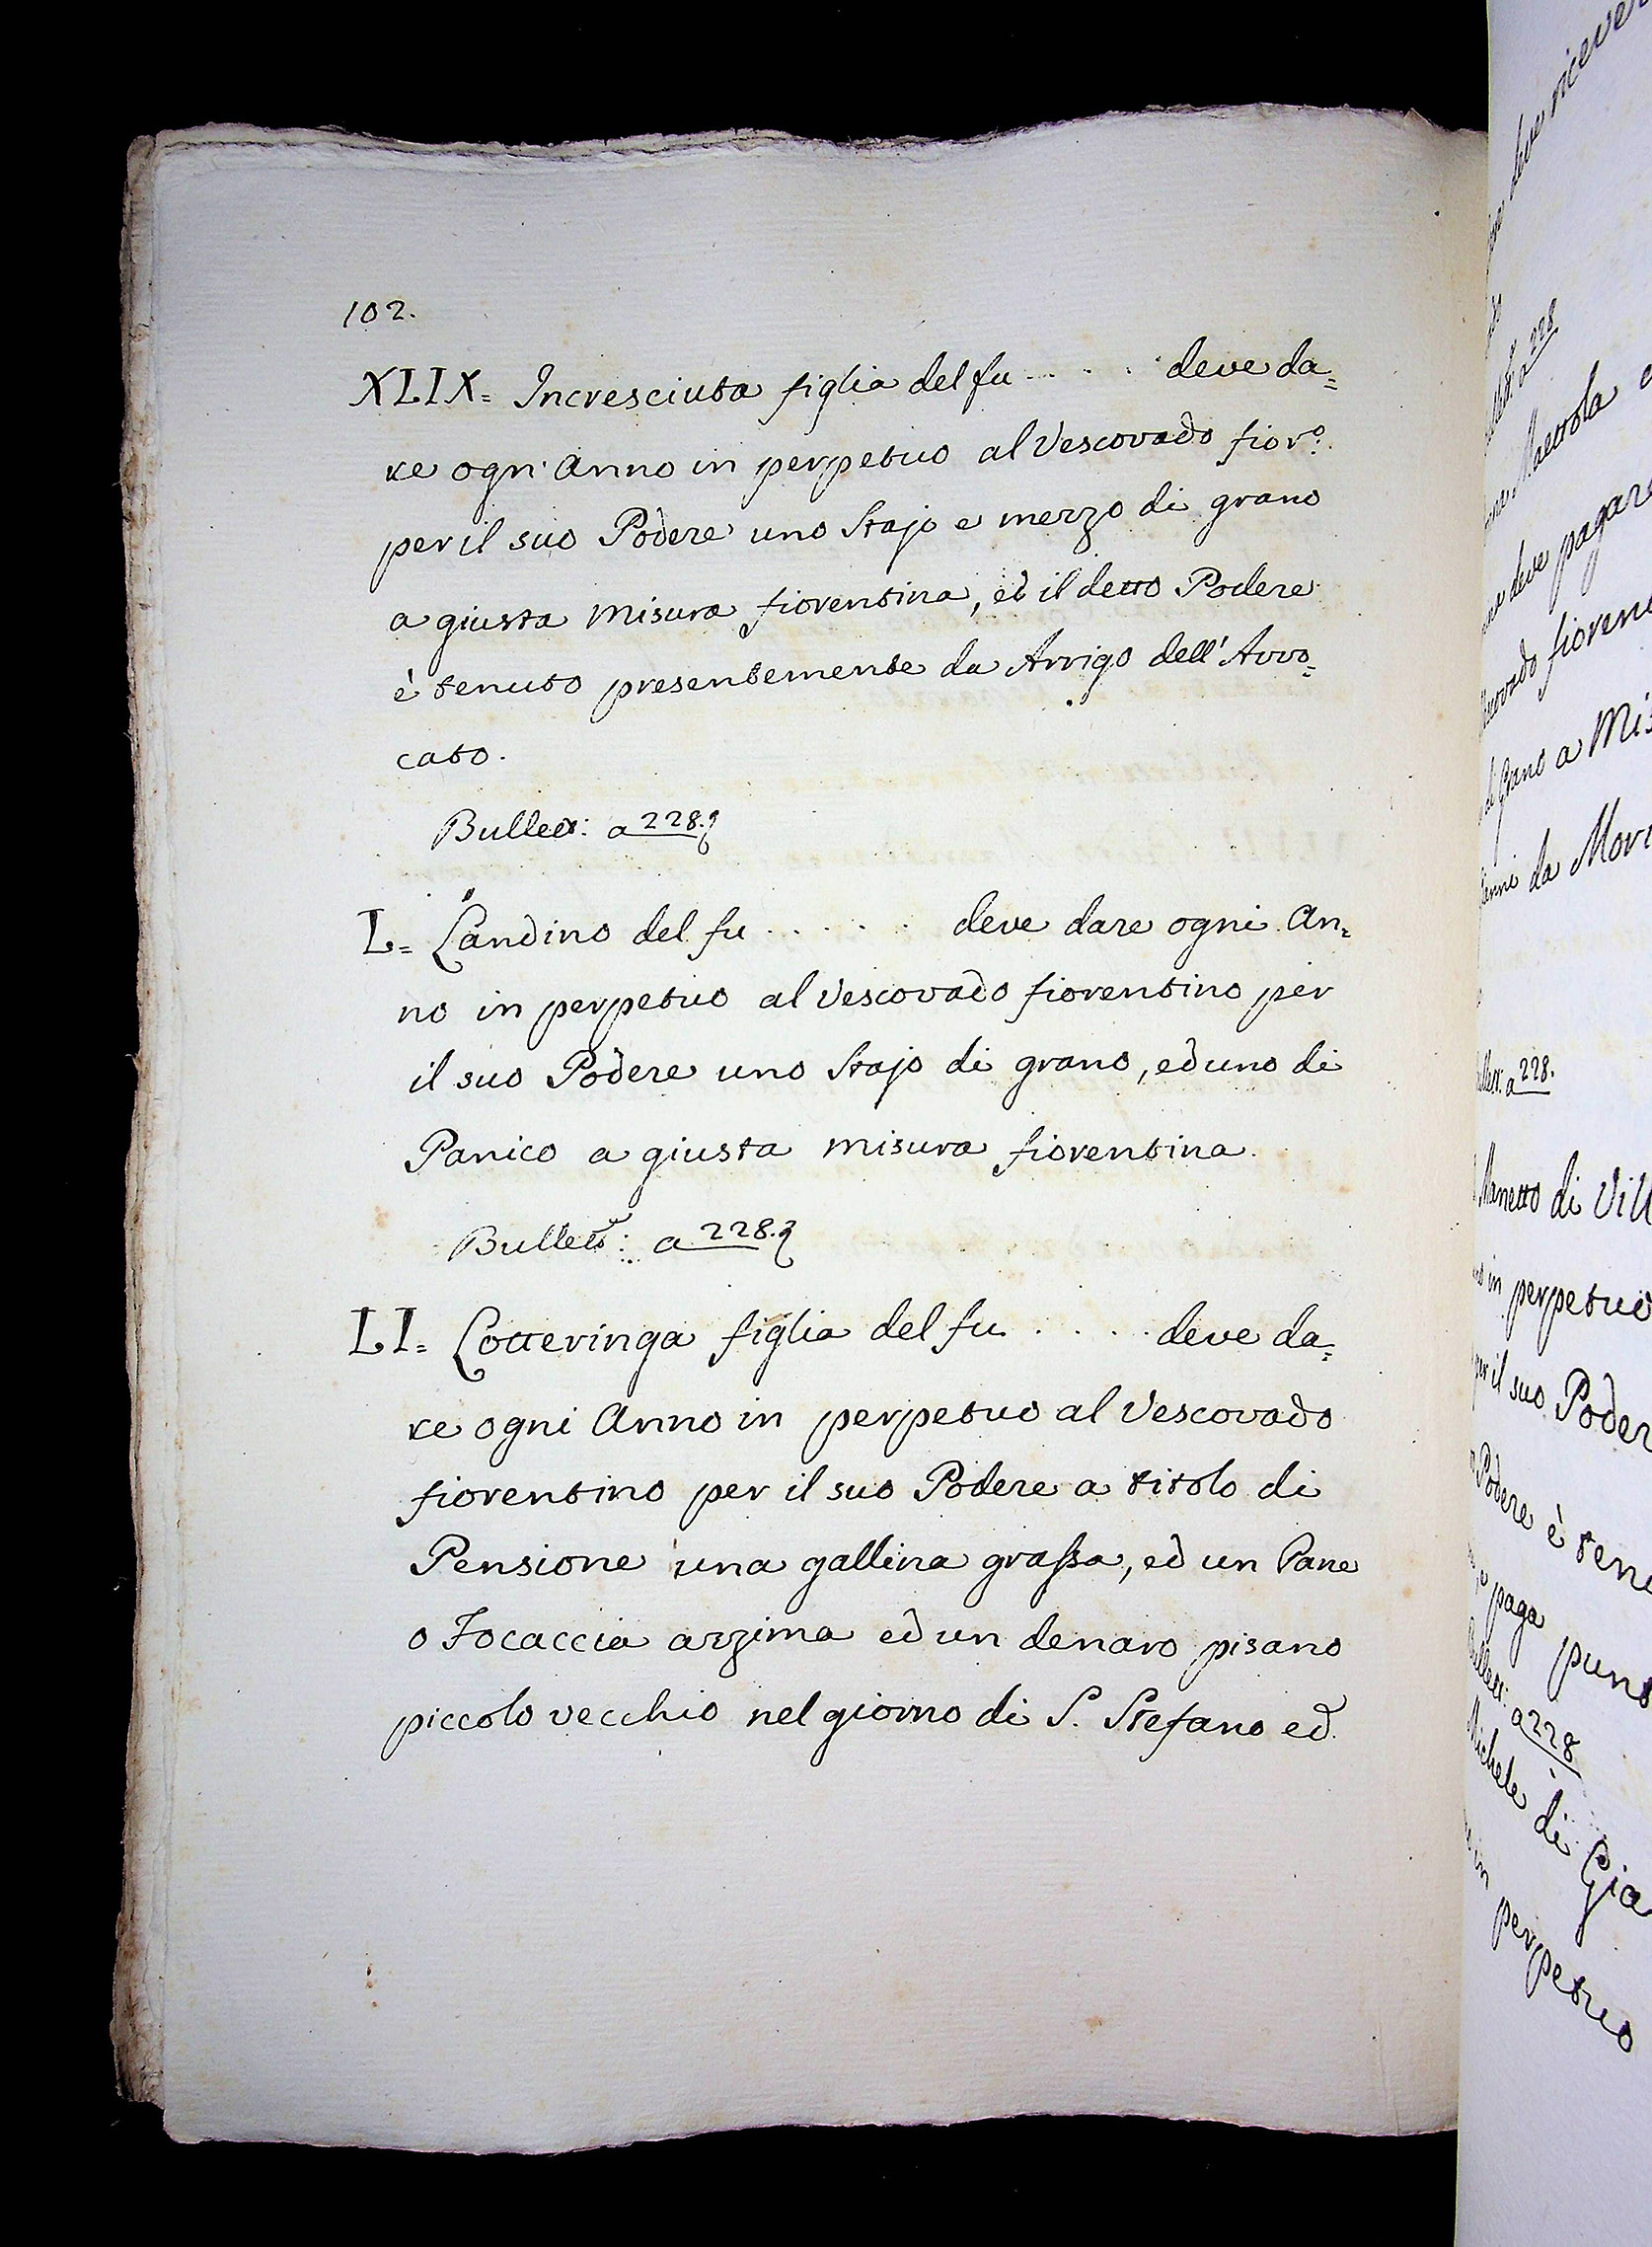 102.
XLIX= Incresciuta figlia del fu . . . . deve da=
re ogn' Anno in perpetuo al Vescovado fior.º
per il suo Podere uno Stajo e mezzo di grano
a giusta misura fiorentina, ed il detto Podere
è tenuto presentemente da Arrigo dell'Avvo=
cato.
Bullett: a 228.
L= Landino del fu . . . . . . deve dare ogni An=
no in perpetuo al Vescovado fiorentino per
il suo Podere uno Stajo di grano, ed uno di
Panico a giusta misura fiorentina.
Bullett: a 228.
LI= Lotteringa figlia del fu . . . . deve da=
re ogni Anno in perpetuo al Vescovado
fiorentino per il suo Podere a titolo di
Pensione una gallina grassa, ed un Pane
o Focaccia azzima ed un denaro pisano
piccolo vecchio nel giorno di S. Stefano ed
deve
a 228
deve pagar
fioren
Grano a Mis
da Mor
a 228.
Manetto di Vill
in perpetuo
per il suo Poder
Podere è ten
paga punt
a 228
Michele di Gia
in perpetuo